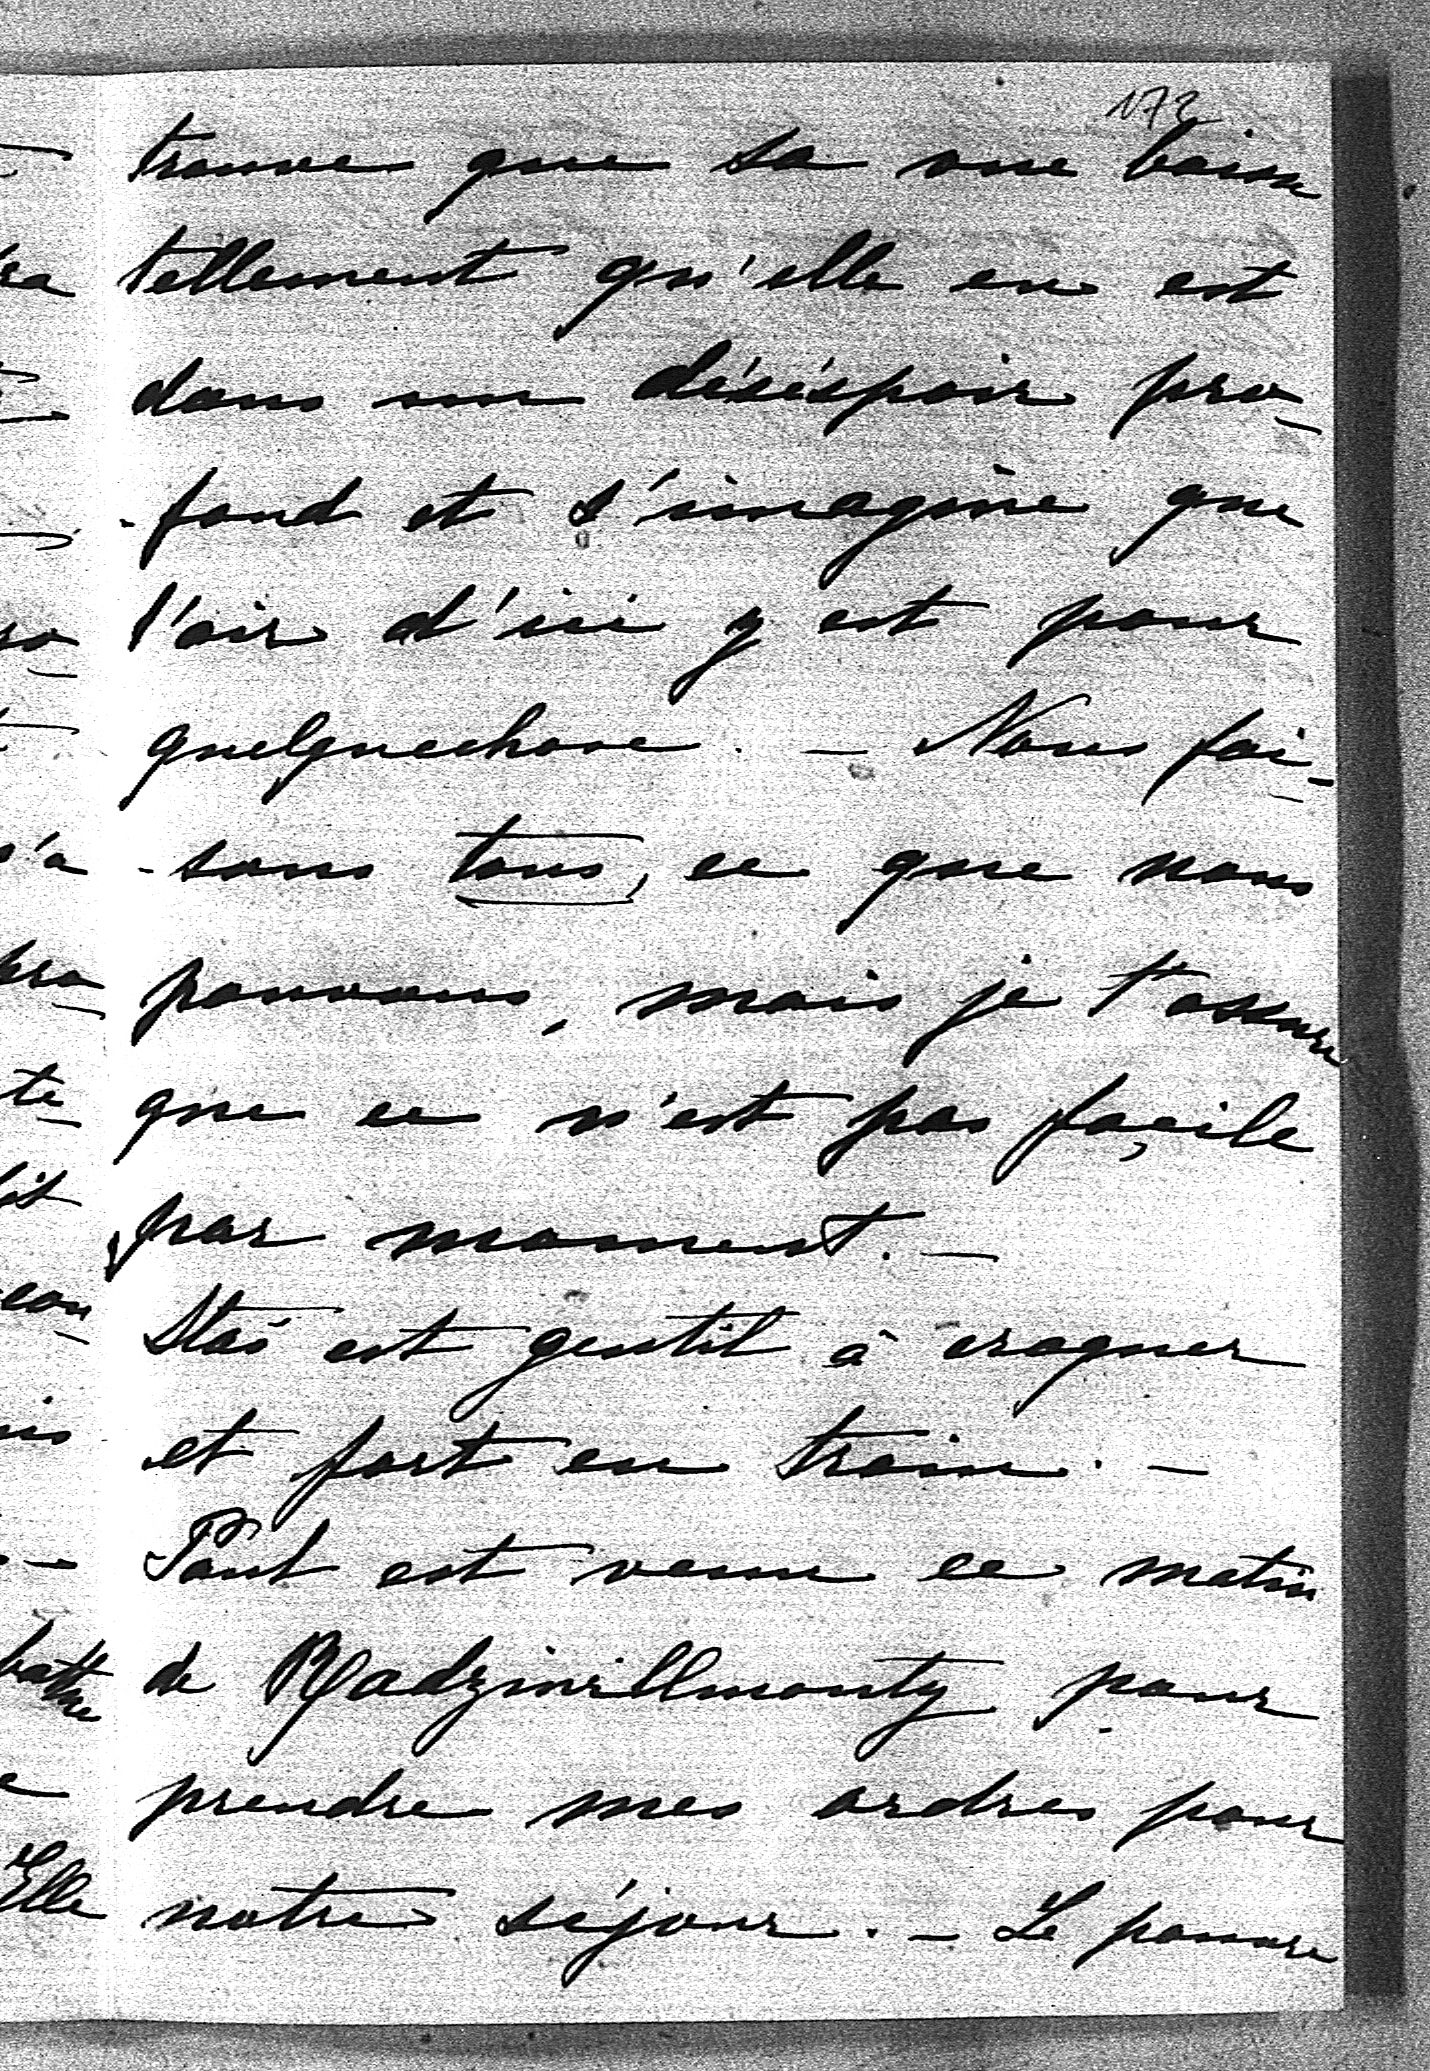 172
trouve que sa vue baisse
tellement qu'elle en est
dans un déséspoir pro-
-fond et s'imagine que
l'air d'ici y est pour
quelquechose. — Nous fai-
-sons tous, ce que nous
pouvons, mais je t'assure
que ce n'est pas façile
par moment. —
Staś est gentil à croquer
et fort en train. —
Paul est venu ce matin
de Radziwillmonty pour
prendre mes ordres pour
notre séjour. — Le pauvre